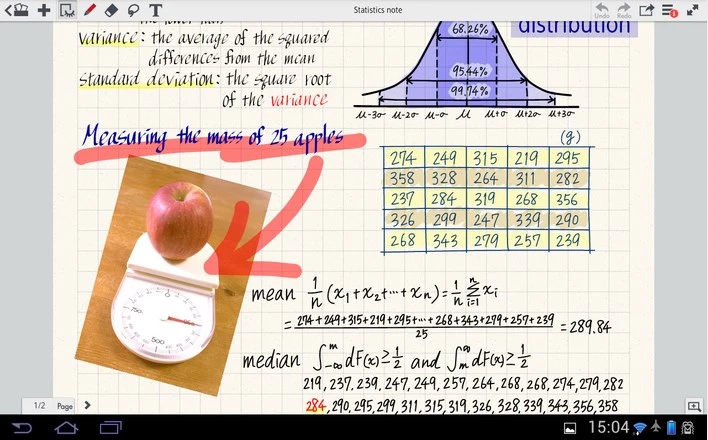 Statistics note
variance: the average of the squared
differences from the mean
standard deviation: the square root
of the variance
distribution
68.26%
95.44%
99.74%
μ-3σ μ-2σ μ-σ μ μ+σ μ+2σ μ+3σ
Measuring the mass of 25 apples
(g)
274 249 315 219 295
358 328 264 311 282
237 284 319 268 356
326 299 247 339 290
268 343 279 257 239
0
750
500
mean 1/n (x₁+x₂+⋯+xₙ)=1/n ∑ⁿᵢ₌₁ xᵢ
= 274+249+315+219+295+⋯+268+343+279+257+239 / 25 = 289.84
median ∫₋∞ᵐ dF(x)≥1/2 and ∫ₘ^∞ dF(x)≥1/2
219, 237, 239, 247, 249, 257, 264, 268, 268, 274, 279, 282
284, 290, 295, 299, 311, 315, 319, 326, 328, 339, 343, 356, 358
1/2 Page
15:04